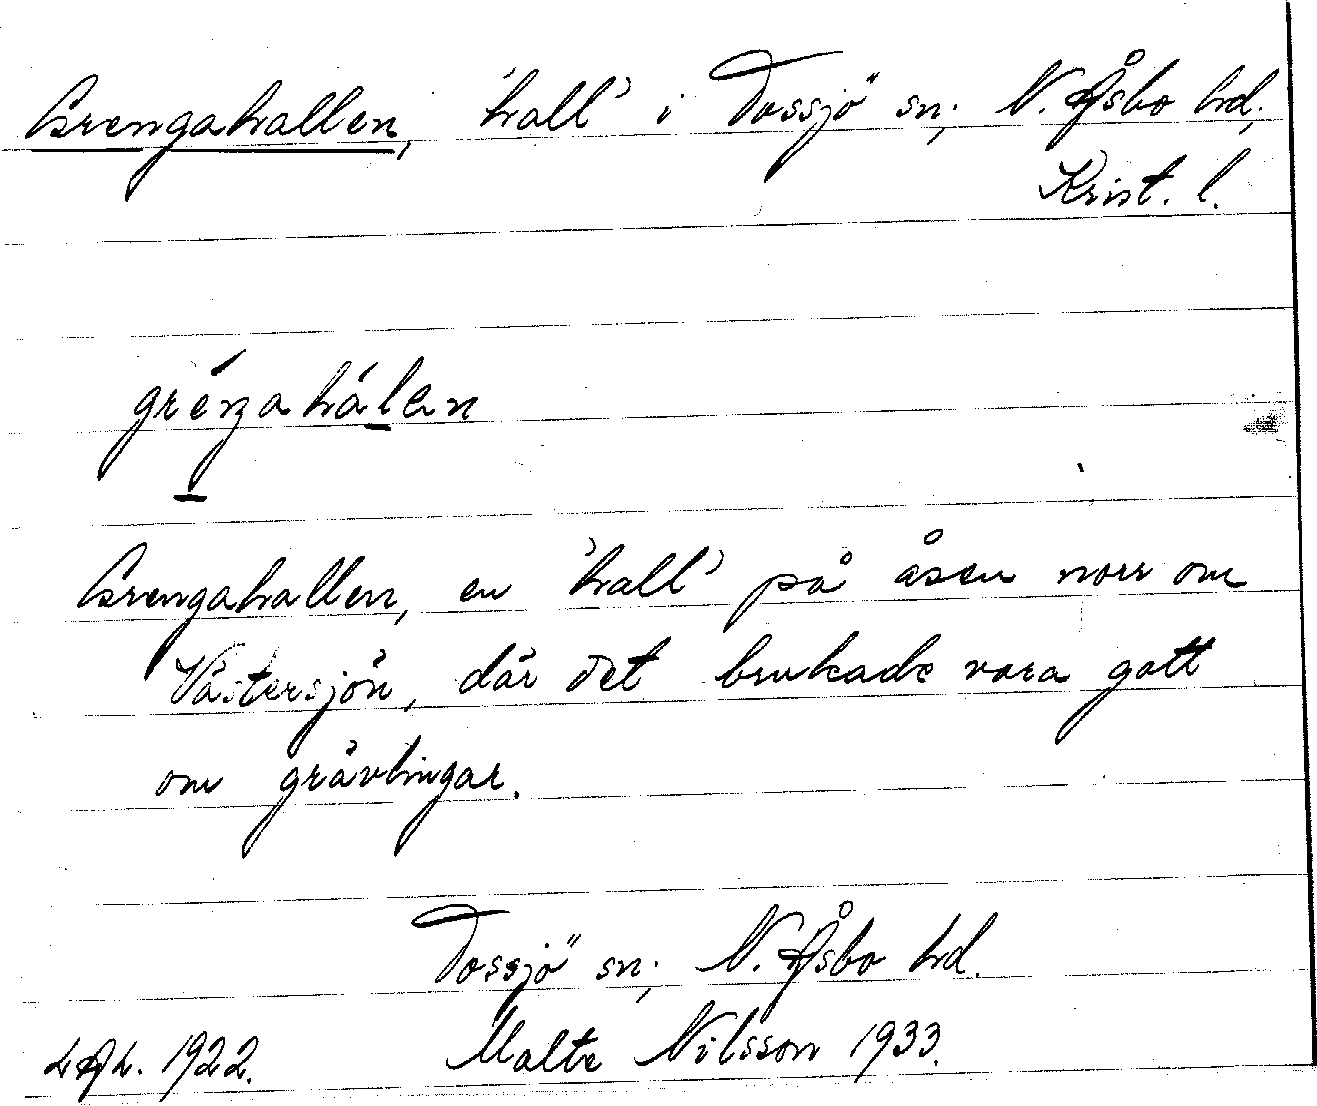 Grengahallen, 'hall' i Tossjö sn; N. Åsbo hd,
Krist. l.
gréŋahálen
Grengahallen, en 'hall' på åsen norr om
Västersjön, där det brukade vara gott
om grävlingar.
Tossjö sn; N. Åsbo hd.
1922. Malte Nilsson 1933.